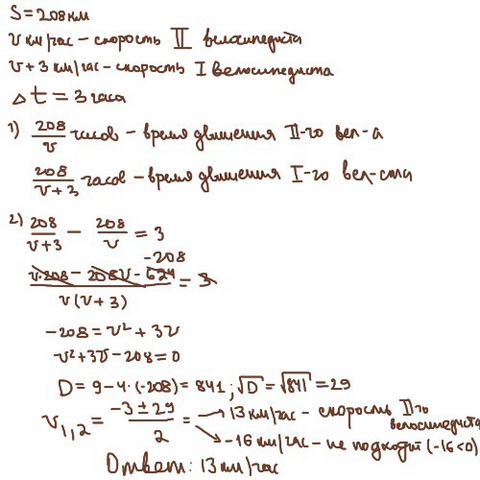 S = 208 км
v км/час – скорость II велосипедиста
v+3 км/час – скорость I велосипедиста
Δt = 3 часа
1) 208/v часов – время движения II-го вел-а
208/(v+3) часов – время движения I-го вел-ста
2) 208/(v+3) – 208/v = 3
-208
(v·208 – 208v – 624)/(v(v+3)) = 3
-208 = v² + 3v
v² + 3v – 208 = 0
D = 9 – 4·(-208) = 841; √D = √841 = 29
v₁,₂ = (-3 ± 29)/2 = → 13 км/час – скорость II-го велосипедиста
→ -16 км/час – не подходит (-16<0)
Ответ: 13 км/час